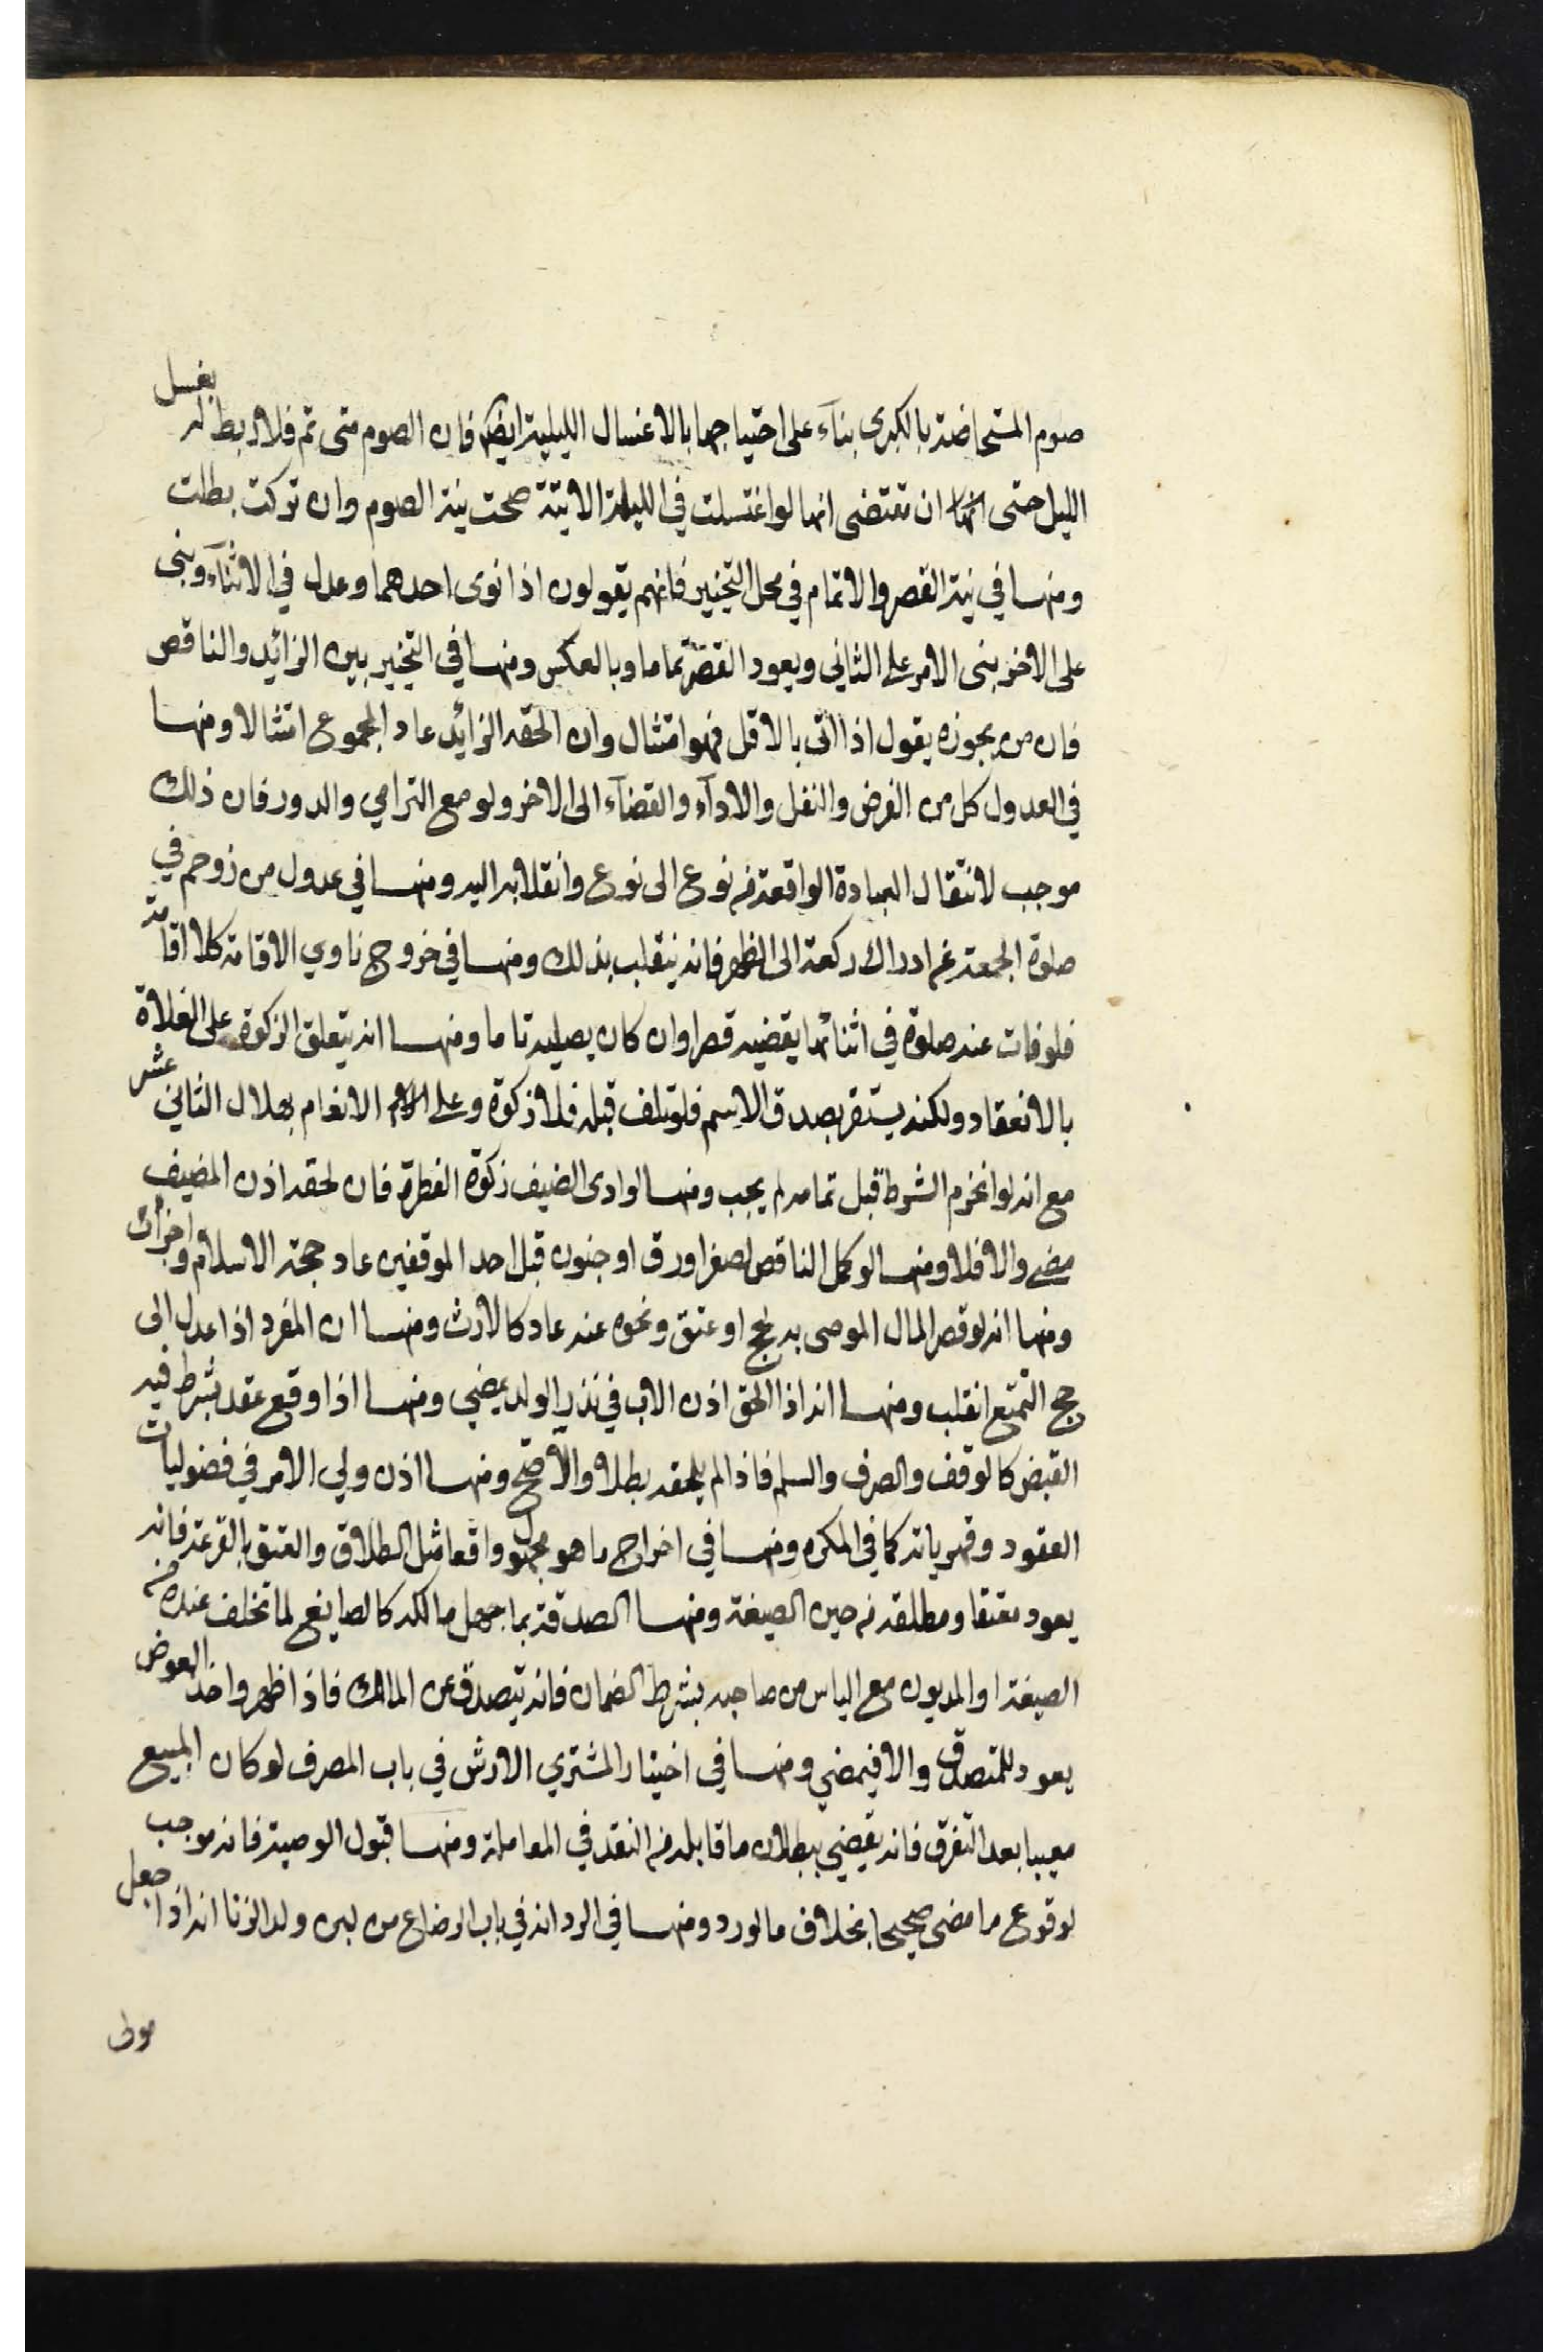 صوم المستحاضة بالكبرى بناء على احتياجها بالاغسال الليلية ايضا فان الصوم متى تم فلا ربط له بغسل
الليل حتى ان مقتضى انها لو اغتسلت في الليلة الاتية صحت نية الصوم وان تركت بطلت
ومنها في نية القصر والاتمام في محل التخيير فانهم يقولون اذا نوى احدهما وعدل في الاثناء وبنى
على الاخر بنى الامر على الثاني ويعود القصر تماما وبالعكس ومنها في التخيير بين الزائد والناقص
فان من يجوزه يقول اذا اتى بالاقل فهو امتثال وان الحقه الزائد عاد المجموع امتثالا ومنها
في العدول كل من الفرض والنفل والاداء والقضاء الى الاخر ولو مع الترامي والدور فان ذلك
موجب لانتقال العبادة الواقعة من نوع الى نوع وانقلابه اليه ومنها في عدول من زوحم في
صلوة الجمعة عن ادراك ركعة الى الظهر فانه ينقلب بذلك ومنها في خروج ناوي الاقامة كلا اقامة
فلو فات عنه صلوة في اثنائها يقضيه قصرا وان كان يصليه تاما ومنها انه يتعلق الزكوة على الغلاة
بالانعقاد ولكنه يستقر بصدق الاسم فلو تلف قبله فلا زكوة وعلى الانعام بهلال الثاني عشر
مع انه لو انخرم الشرط قبل تمامه لم يجب ومنها لو ادى الضيف زكوة الفطرة فان لحقه اذن المضيف
مضى والا فلا ومنها لو كمل الناقص لصغر او رق او جنون قبل احد الموقفين عاد حجة الاسلام واجزأت
ومنها انه لو قصر المال الموصى به لحج او عتق ونحوه عنه عاد كالارث ومنها ان المفرد اذا عدل الى
حج التمتع انقلب ومنها انه اذا الحق اذن الاب في نذر الولد يمضي ومنها اذا وقع عقد يشرط فيه
القبض كالوقف والصرف والسلم فاذا لم يلحقه بطلا والا صح ومنها اذن ولي الامر في فضوليات
العقود وقهرياته كما في المكره ومنها في اخراج ما هو مجهول واقعا مثل الطلاق والعتق بالقرعة فانه
يعود معتقا ومطلقة من حين الصيغة ومنها الصدقة بما جهل مالكه كالصايغ لما تخلف عنده من
الصيغة او المديون مع الياس من صاحبه بشرط الضمان فانه يتصدق عن المالك فاذا ظهر واخذ العوض
يعود للمتصدق والا فيمضي ومنها في اختيار المشتري الارش في باب الصرف لو كان المبيع
معيبا بعد التفرق فانه يقضي ببطلان ما قابله من النقد في المعاملة ومنها قبول الوصية فانه موجب
لوقوع ما مضى صحيحا بخلاف ما لو رد ومنها في الرد انه في باب الرضاع من لبن ولد الزنا انه اذا جعل